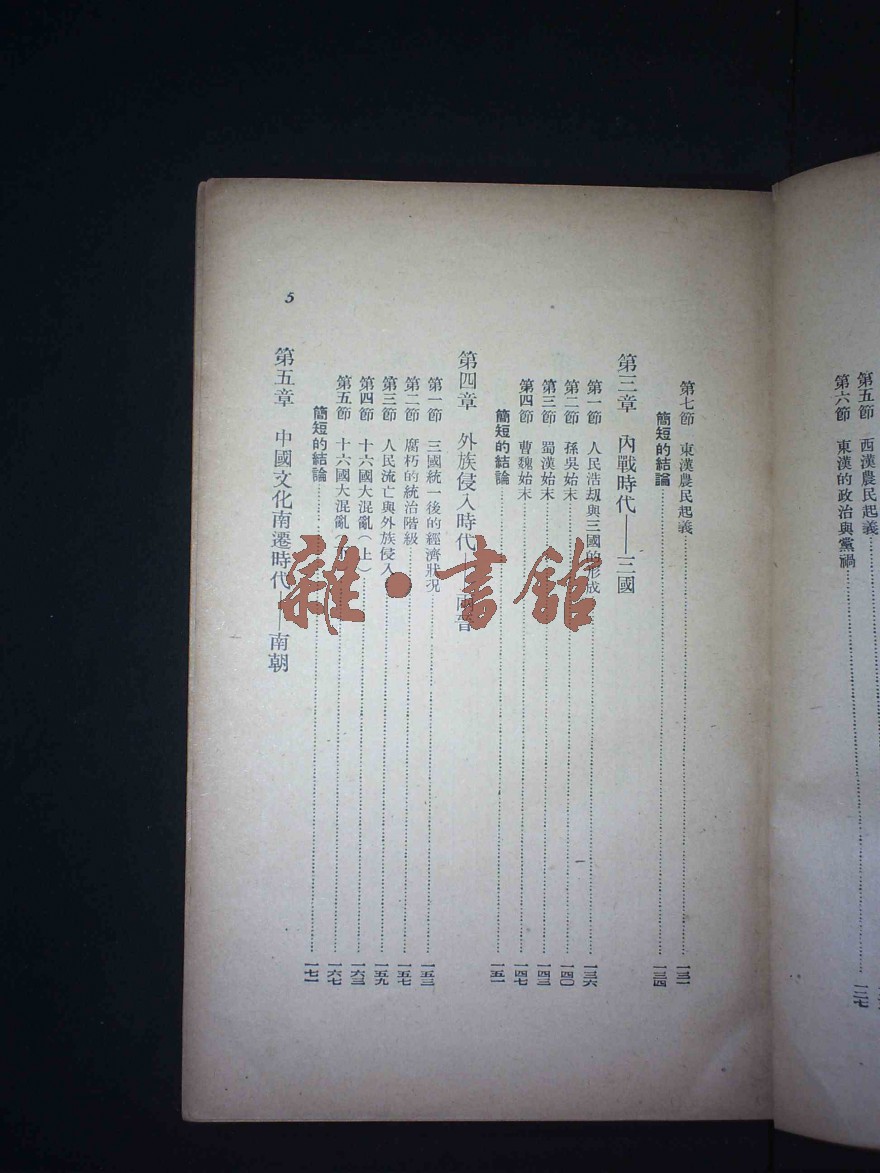 第五節 西漢農民起義
第六節 東漢的政治與黨禍 一二七
第七節 東漢農民起義 一三一
簡短的結論 一三四
第三章 內戰時代——三國
第一節 人民浩劫與三國的形成 一三六
第二節 孫吳始末 一四〇
第三節 蜀漢始末 一四三
第四節 曹魏始末 一四七
簡短的結論 一五一
第四章 外族侵入時代——兩晉
第一節 三國統一後的經濟狀況 一五三
第二節 腐朽的統治階級 一五七
第三節 人民流亡與外族侵入 一五九
第四節 十六國大混亂(上) 一六三
第五節 十六國大混亂(下) 一六七
簡短的結論 一七一
第五章 中國文化南遷時代——南朝
5
雜·書館